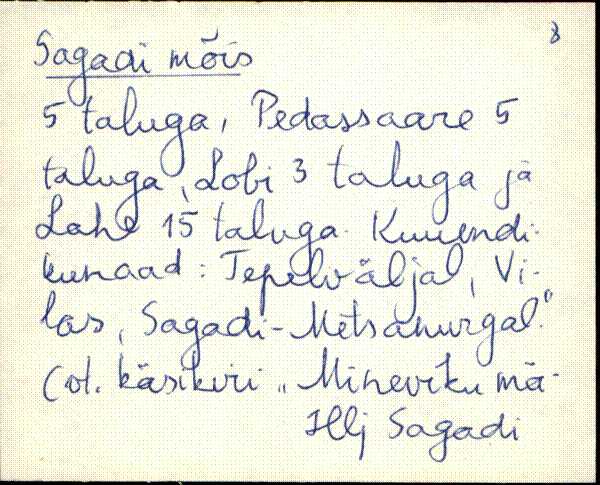 8
Sagadi mõis
5 taluga, Pedassaare 5
taluga, Lobi 3 taluga ja
Lahe 15 taluga. Kuuendi-
kunaad: Tepelväljal, Vi-
las, Sagadi-Metsanurgal."
(vt. käsikiri „Mineviku mä-
Hlj Sagadi